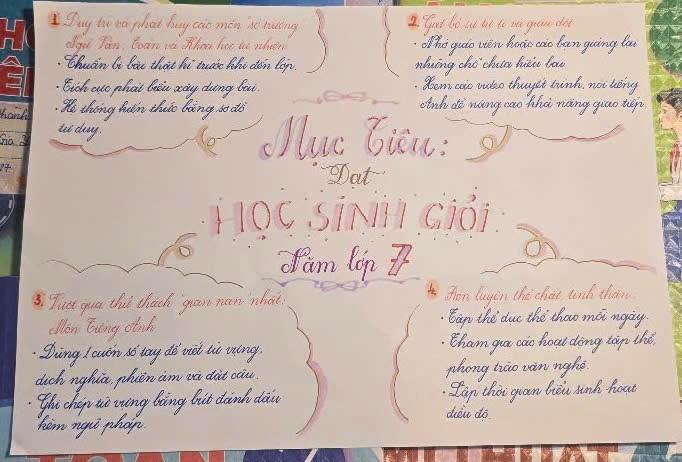 1 Duy trì và phát huy các môn "sở trường"
Ngữ Văn, Toán và Khoa học tự nhiên
· Chuẩn bị bài thật kĩ trước khi đến lớp.
· Tích cực phát biểu xây dựng bài.
· Hệ thống kiến thức bằng sơ đồ
tư duy.
2 Gạt bỏ sự tự ti và giấu dốt
· Nhờ giáo viên hoặc các bạn giảng lại
những chỗ chưa hiểu bài
· Xem các video thuyết trình, nói tiếng
Anh để nâng cao khả năng giao tiếp.
Mục Tiêu:
Đạt
HỌC SINH GIỎI
Năm lớp 7
3 Vượt qua thử thách "gian nan" nhất:
Môn Tiếng Anh
· Dùng 1 cuốn sổ tay để viết từ vựng,
dịch nghĩa, phiên âm và đặt câu.
· Ghi chép từ vựng bằng bút đánh dấu
kèm ngữ pháp.
4 Rèn luyện thể chất, tinh thần.
· Tập thể dục thể thao mỗi ngày.
· Tham gia các hoạt động tập thể,
phong trào văn nghệ.
· Lập thời gian biểu sinh hoạt
điều độ.